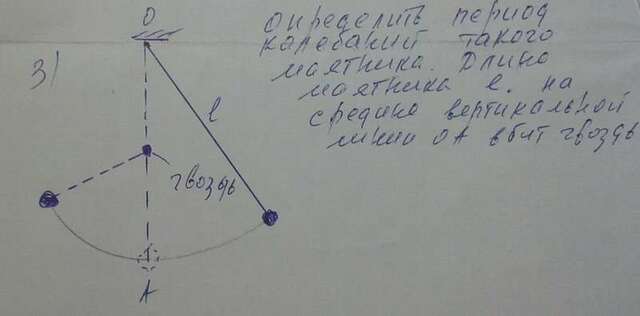 О
3)
l
гвоздь
А
определить период
колебаний такого
маятника. Длина
маятника l. на
средине вертикальной
линии ОА вбит гвоздь